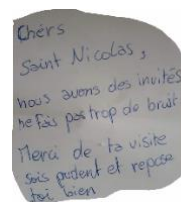 Chérs
Saint Nicolas,
nous avons des invités
ne fais pas trop de bruit
Merci de ta visite
sois prudent et repose
toi bien